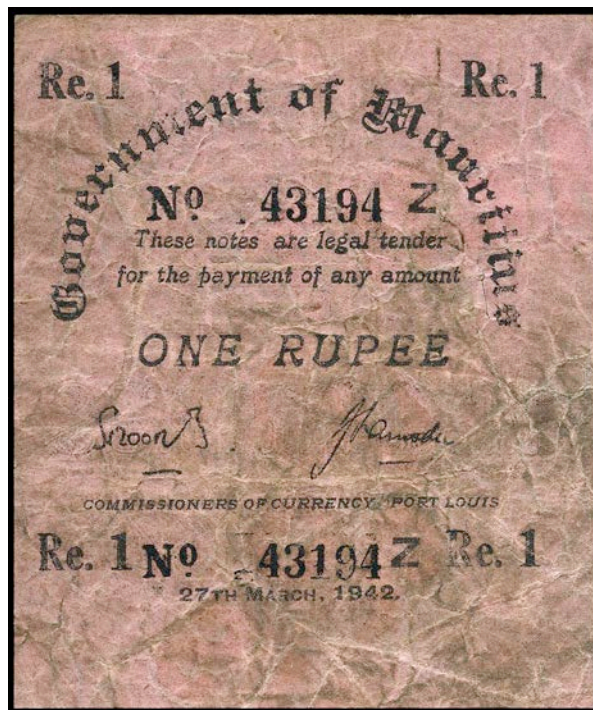 Re. 1 Re. 1
Government of Mauritius
Nº 43194 Z
These notes are legal tender
for the payment of any amount
ONE RUPEE
COMMISSIONERS OF CURRENCY, PORT LOUIS
Re. 1 Nº 43194 Z Re. 1
27TH MARCH, 1942.